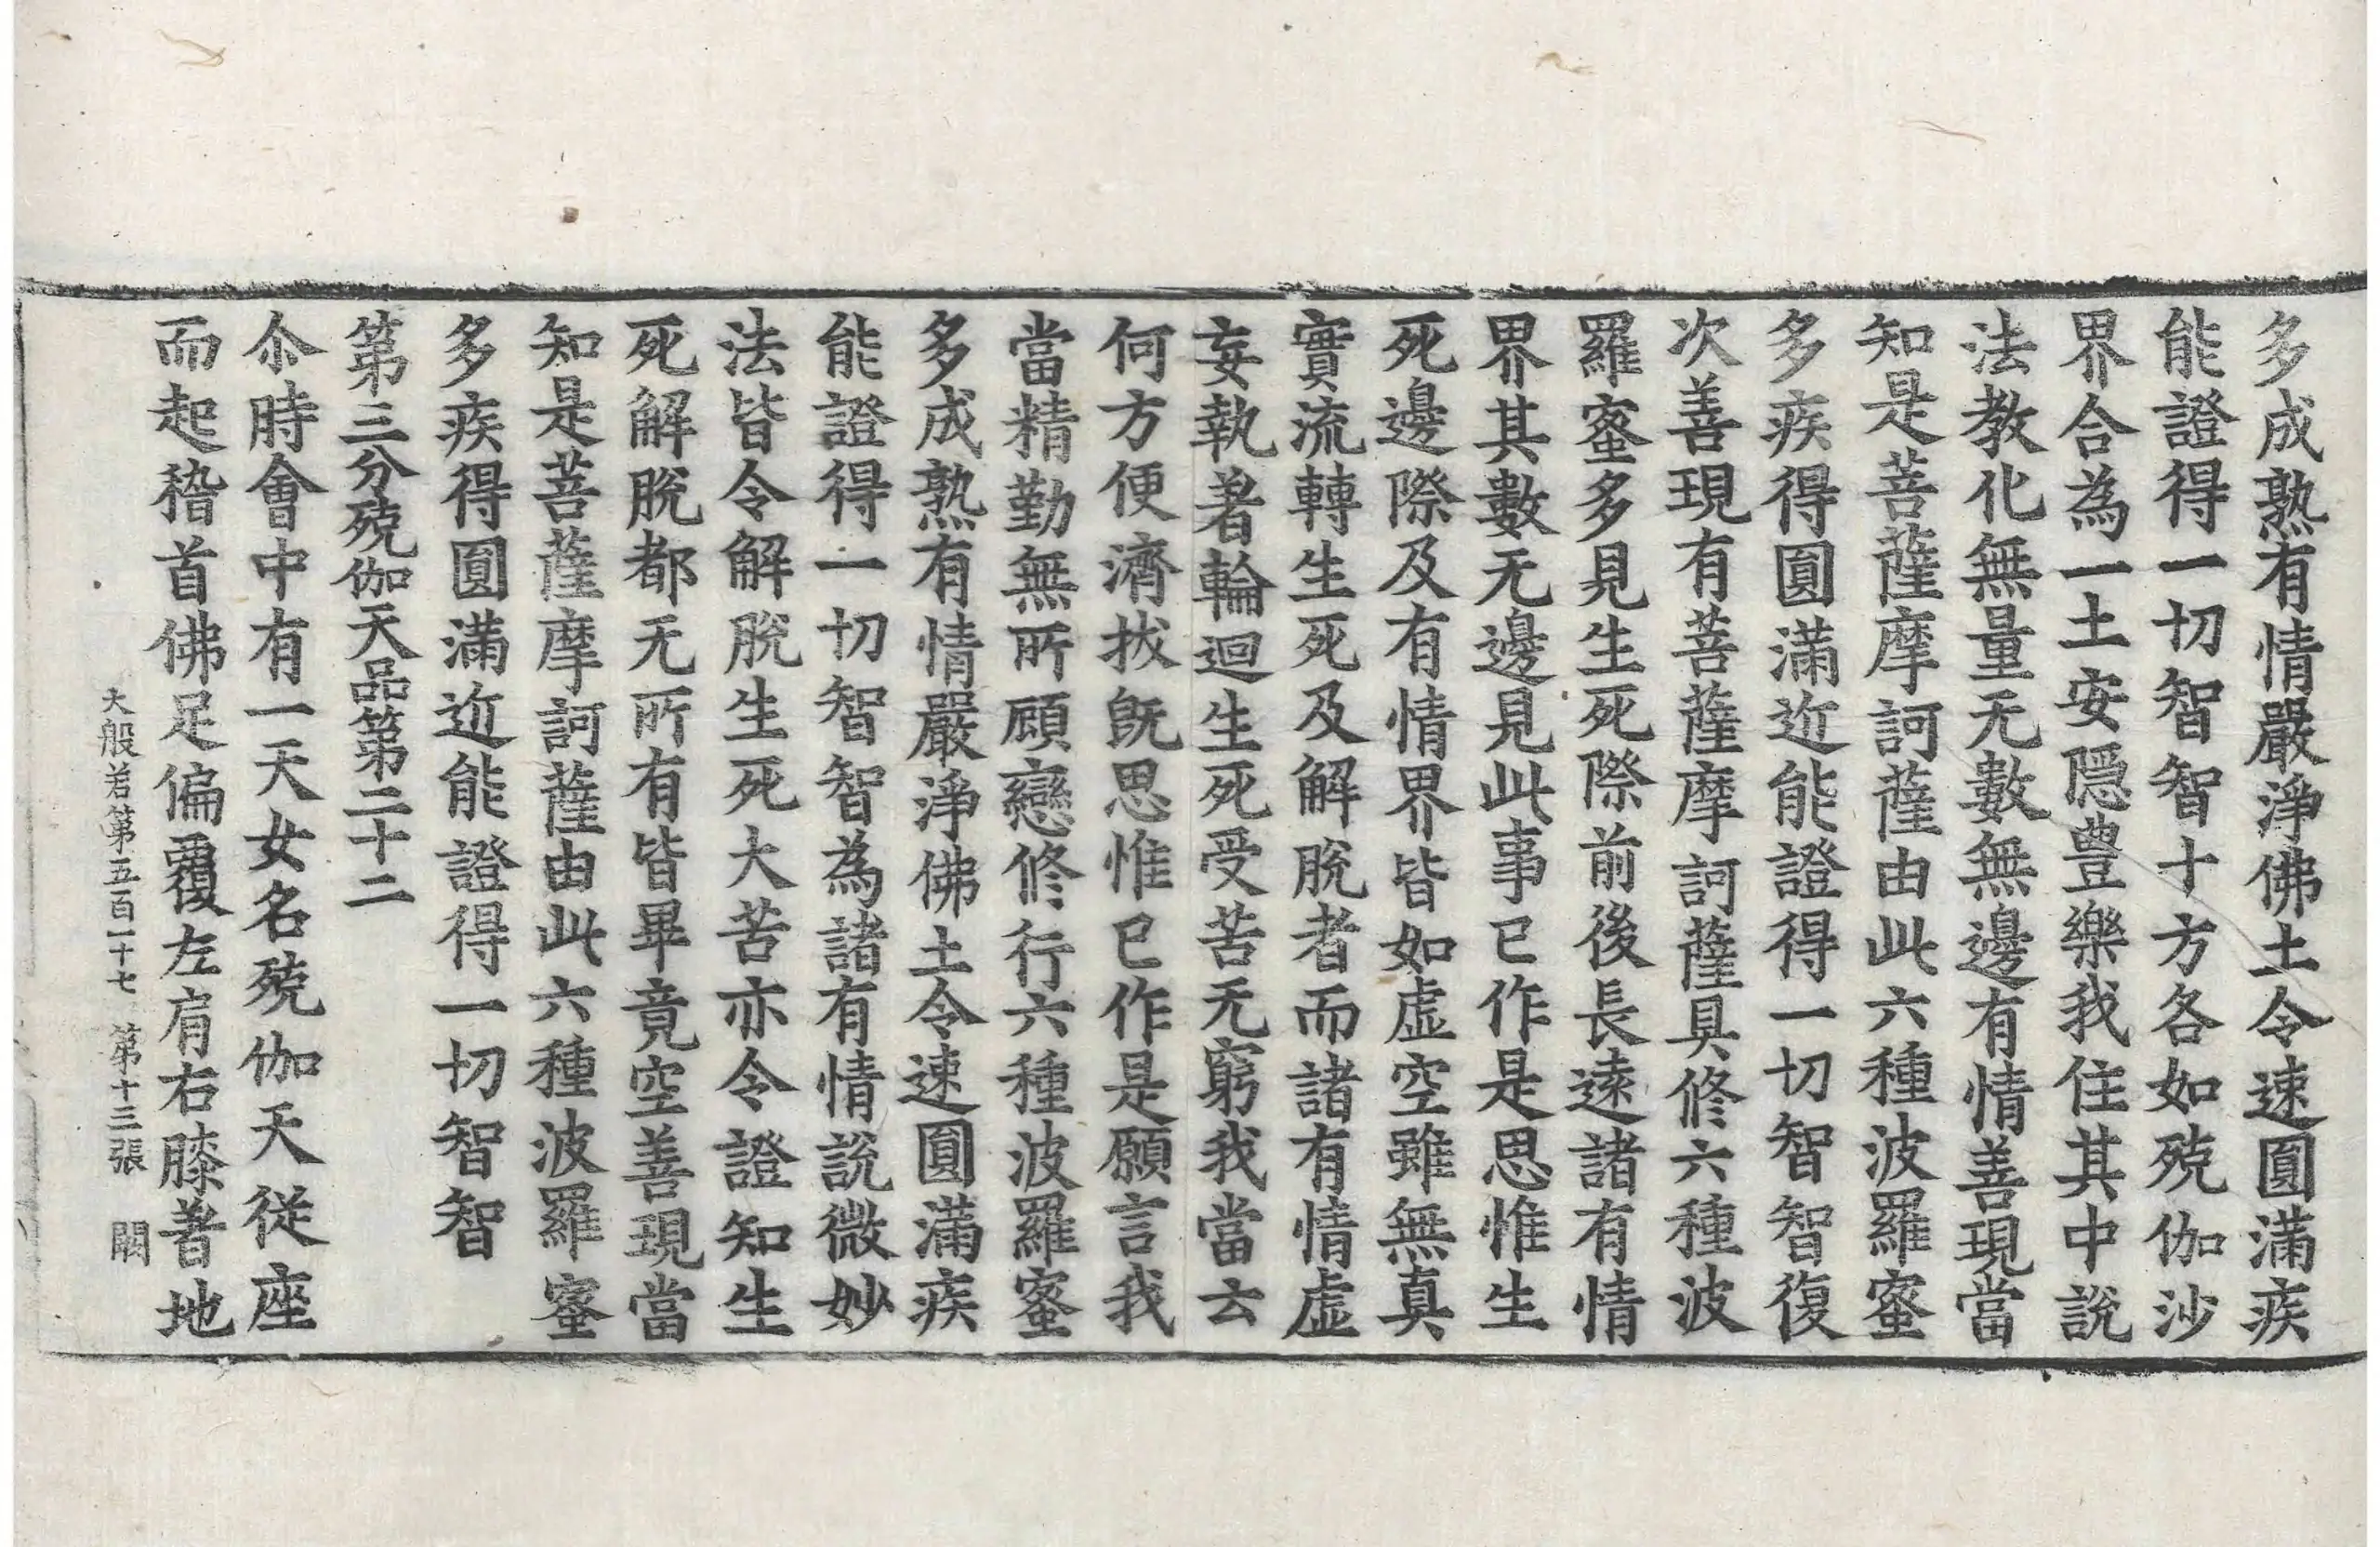 多成熟有情嚴淨佛土令速圓滿疾
能證得一切智智十方各如殑伽沙
界合為一土安隱豊樂我住其中說
法教化無量无數無邊有情善現當
知是菩薩摩訶薩由此六種波羅蜜
多疾得圓滿近能證得一切智智復
次善現有菩薩摩訶薩具修六種波
羅蜜多見生死際前後長遠諸有情
界其數无邊見此事已作是思惟生
死邊際及有情界皆如虛空雖無真
實流轉生死及解脫者而諸有情虛
妄執著輪迴生死受苦无窮我當云
何方便濟拔旣思惟已作是願言我
當精勤無所顧戀修行六種波羅蜜
多成熟有情嚴淨佛土令速圓滿疾
能證得一切智智為諸有情說微妙
法皆令解脫生死大苦亦令證知生
死解脫都无所有皆畢竟空善現當
知是菩薩摩訶薩由此六種波羅蜜
多疾得圓滿近能證得一切智智
第三分殑伽天品第二十二
尒時會中有一天女名殑伽天從座
而起稽首佛足偏覆左肩右膝著地
大般若第五百一十七 第十三張 闕